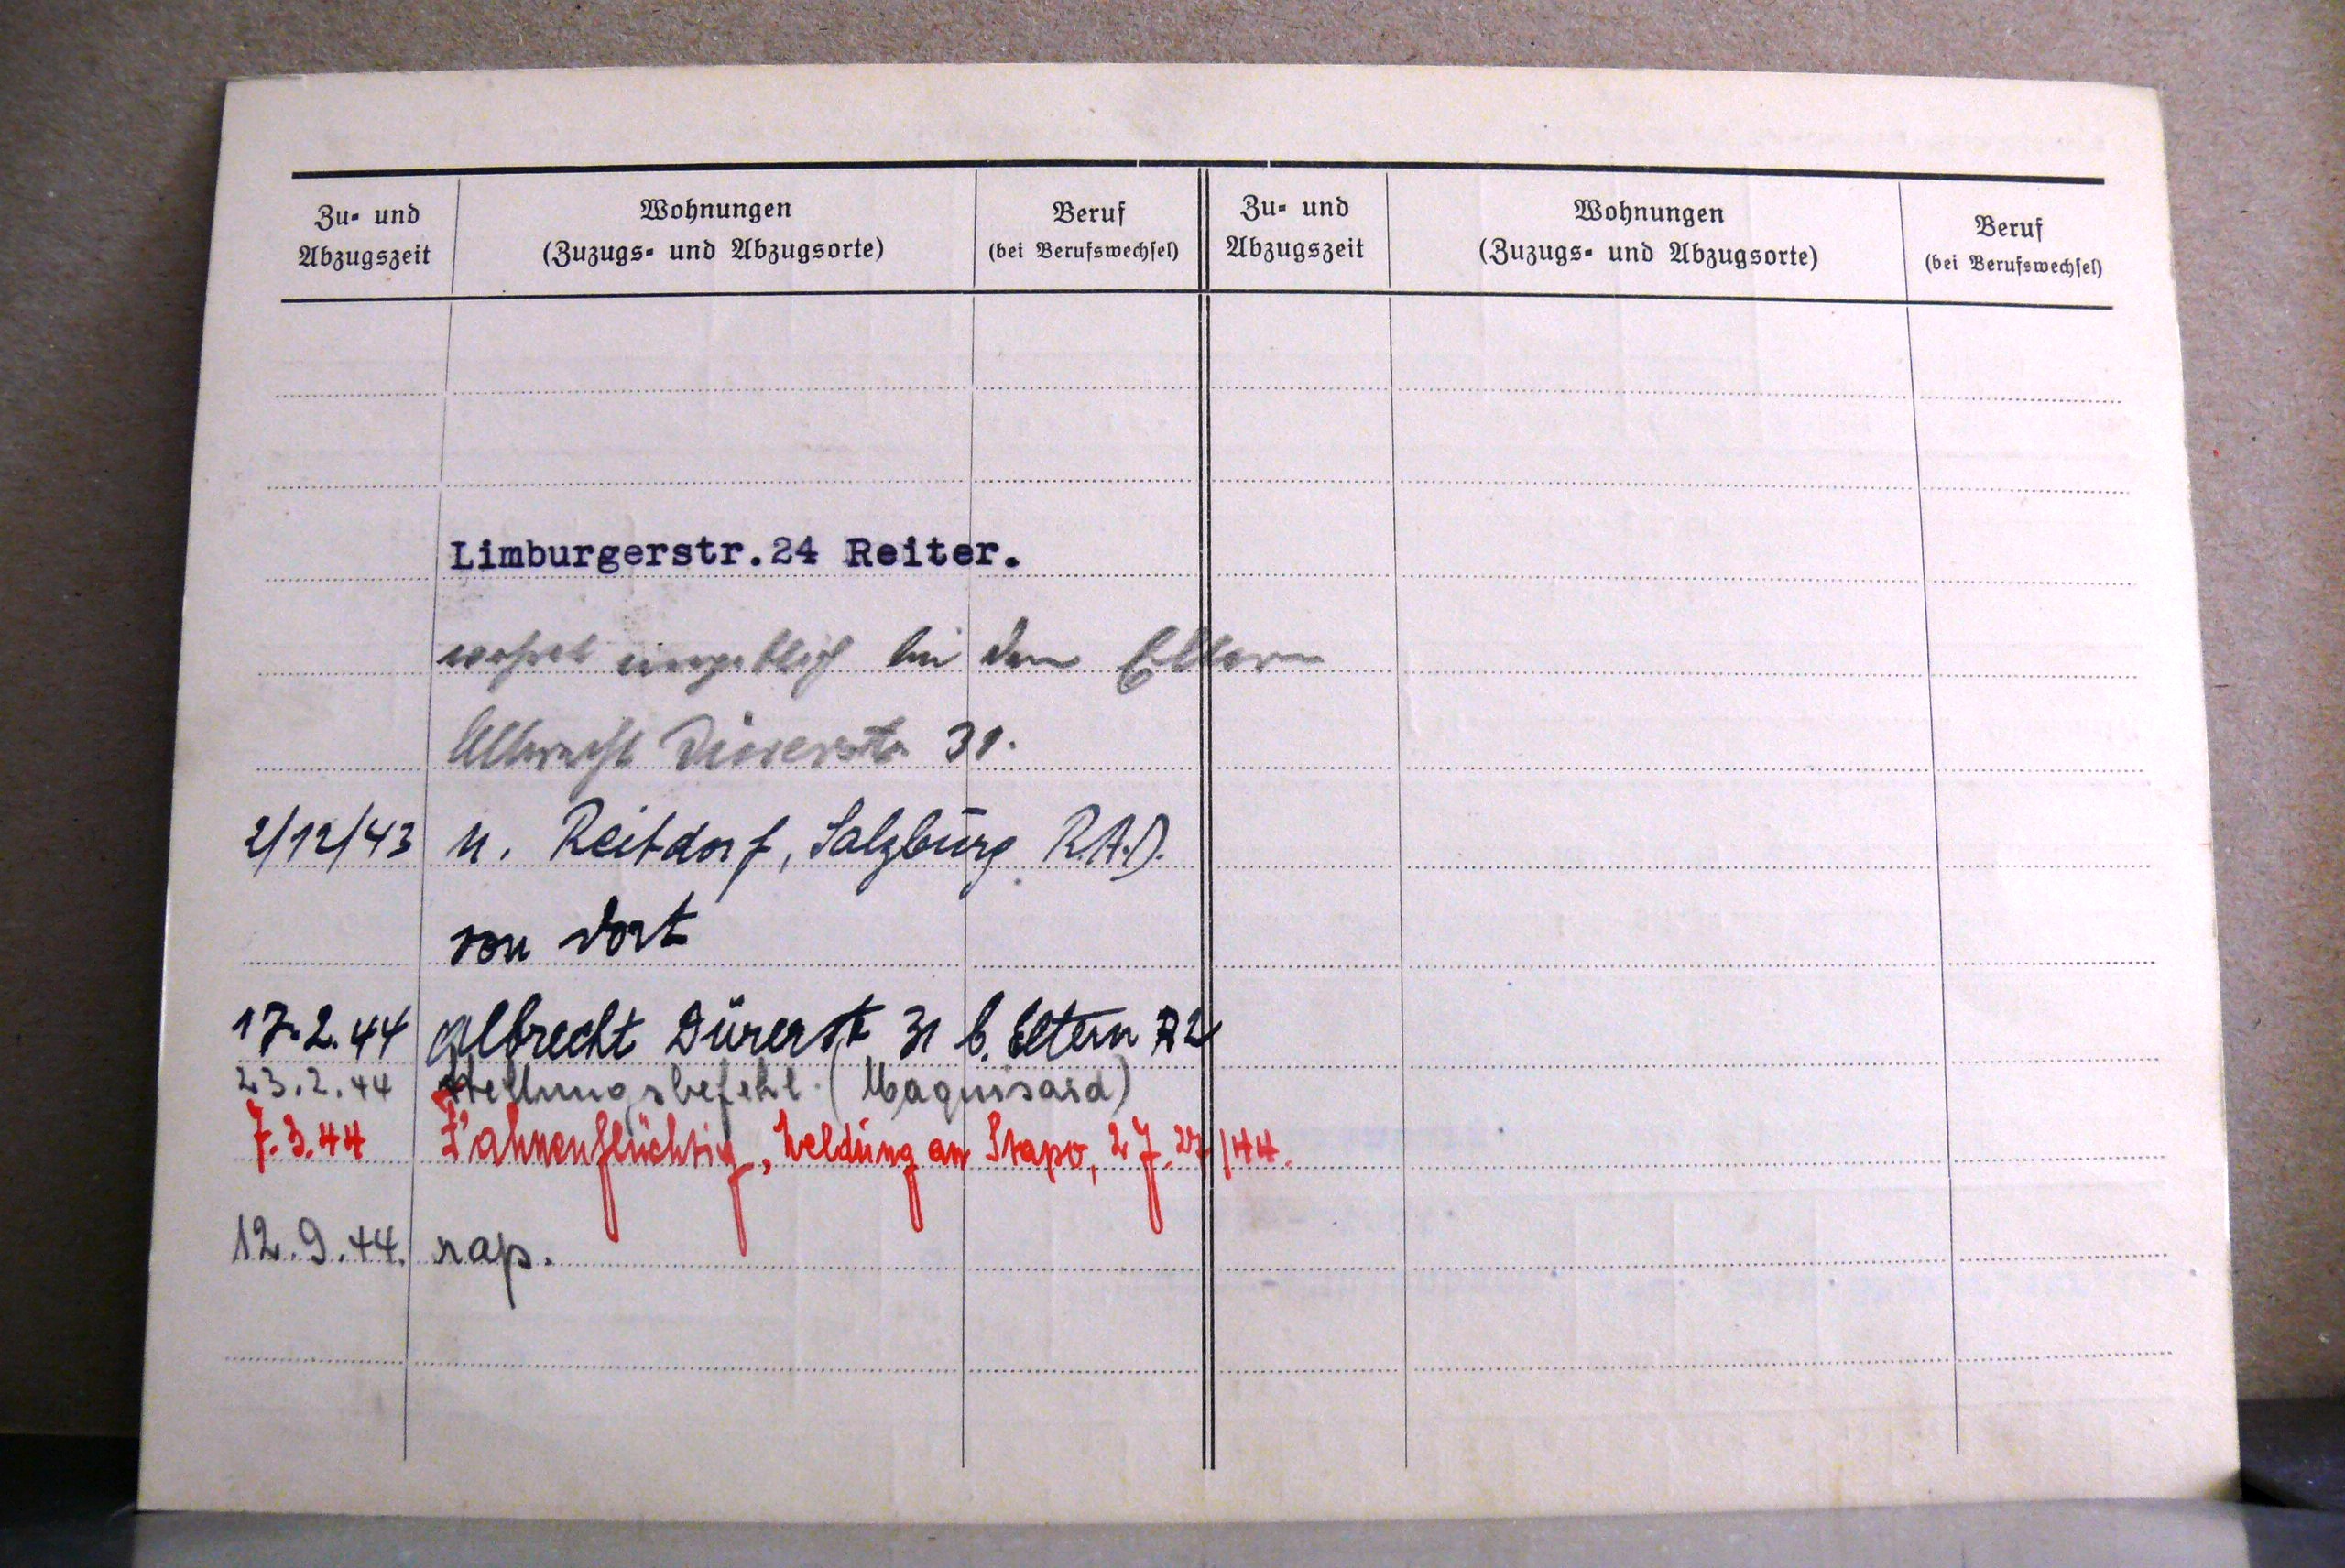 Zu- und Abzugszeit
Wohnungen
(Zuzugs- und Abzugsorte)
Beruf
(bei Berufswechsel)
Zu- und Abzugszeit
Wohnungen
(Zuzugs- und Abzugsorte)
Beruf
(bei Berufswechsel)
Limburgerstr.24 Reiter.
wohnt angeblich bei den Eltern
Albrecht Dürerstr. 31.
2/12/43 n. Reitdorf, Salzburg R.A.D.
von dort
17.2.44 Albrecht Dürerstr 31 b. Eltern
23.2.44 Stellungsbefehl (Maquisard)
7.3.44 Fahnenflüchtig, Meldung an Stapo, 27. /44.
12.9.44. rap.